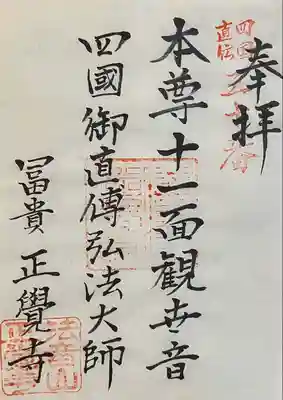 奉拝
四国
直伝
本尊十一面觀世音
四國御直傳弘法大師
冨貴 正覺寺